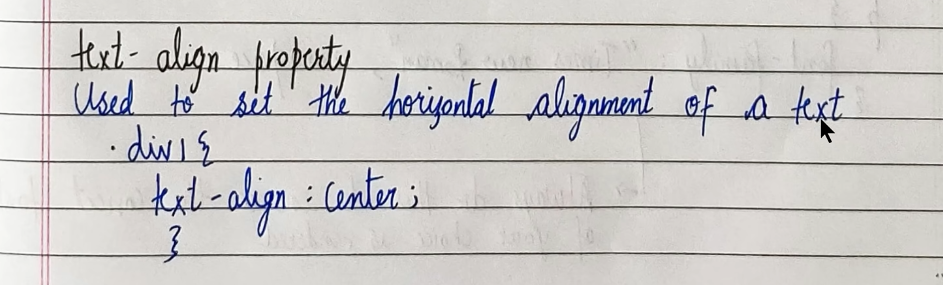 text-align property
Used to set the horizontal alignment of a text
.div1{
text-align : center ;
}